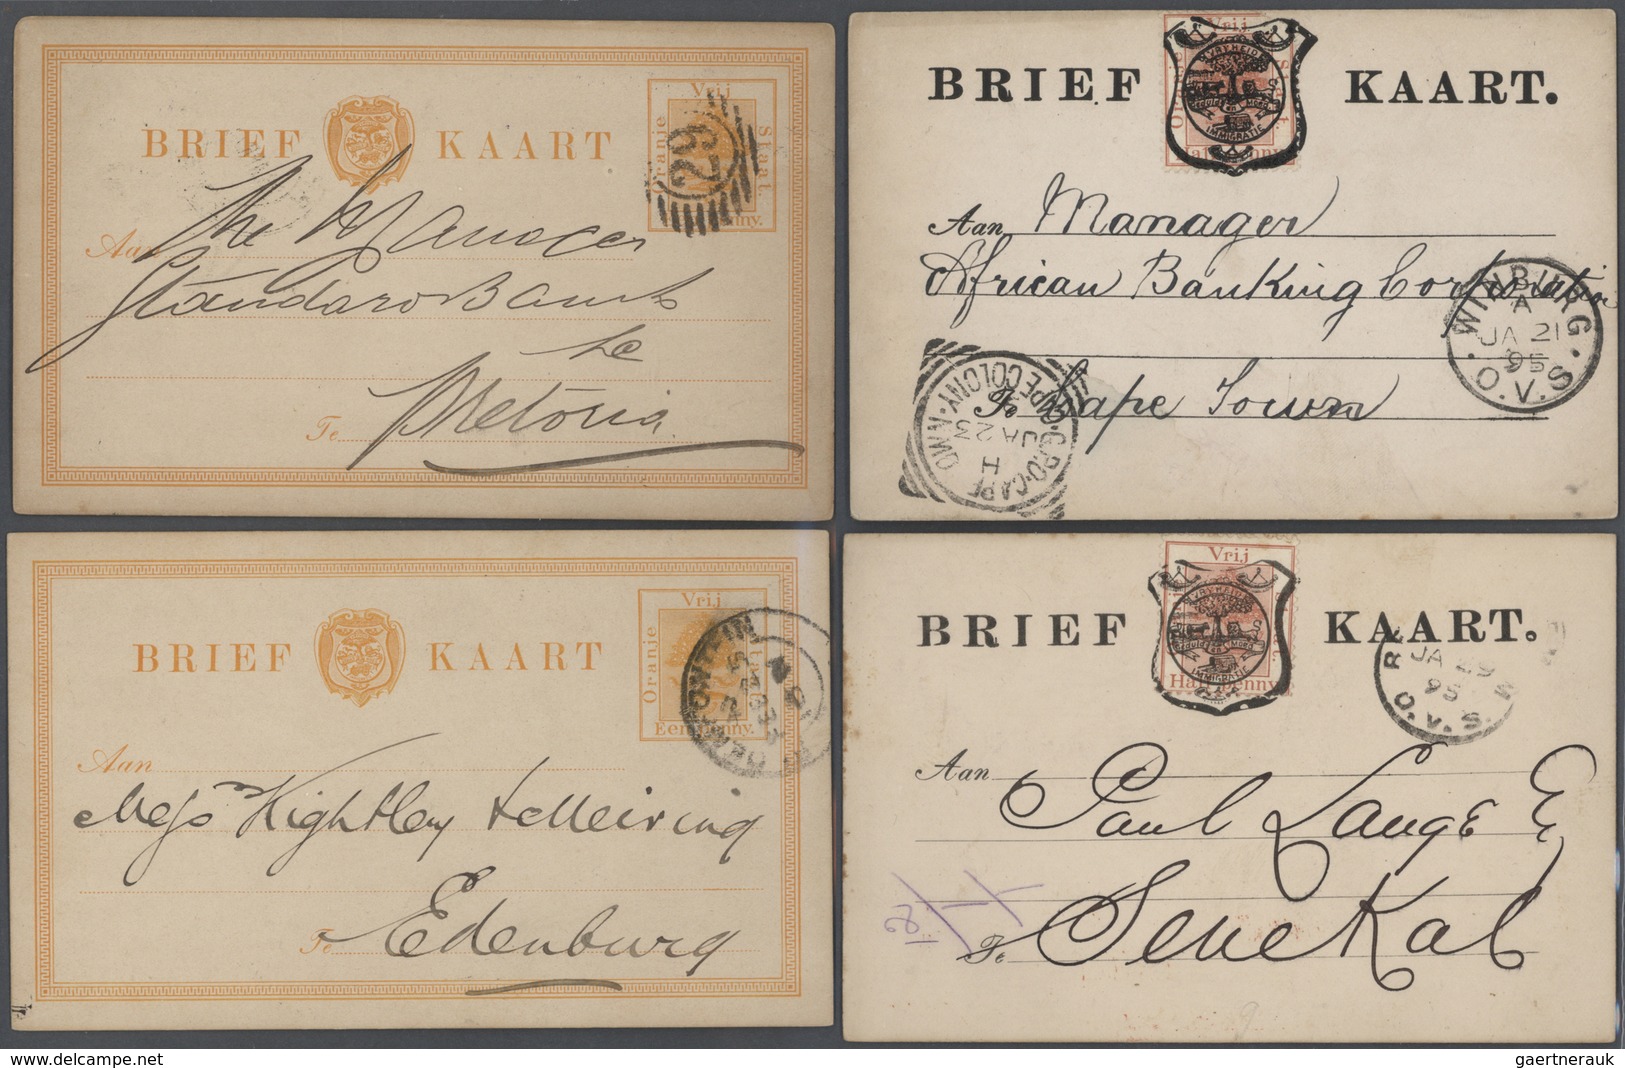 BRIEF KAART
Vrij
Oranje
Staat.
62
Aan The Manager
Standard Bank
Te Pretoria
BRIEF KAART.
Vrij
VRYHEID
IMMIGRATIE
Aan Manager
African Banking Corporation
Te Cape Town
WINBURG
A
JA 21
95
O.V.S.
G.P.O. CAPE TOWN. CAPE COLONY
H
JA 23
BRIEF KAART
Vrij
Oranje
Een Penny.
Aan
Messrs Kightley & Meiring
Te Edenburg
BRIEF KAART.
Vrij
Half Penny
IMMIGRATIE
JA 29
95
O.V.S.
Aan Paul Lange E
Te Senekal
www.delcampe.net
gaertnerauk